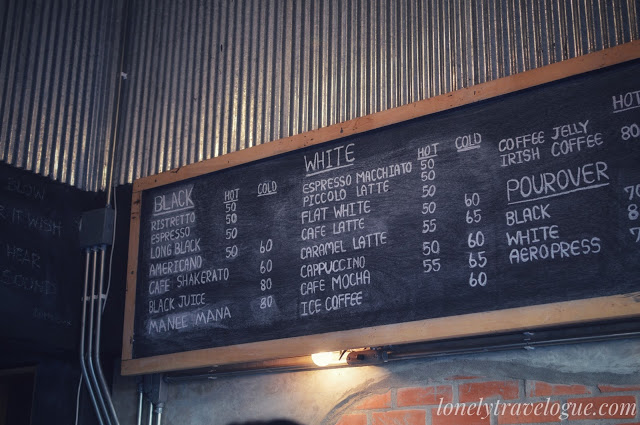 BLOW
IT WISH
HEAR
SOUND
BLACK HOT COLD
RISTRETTO 50
ESPRESSO 50
LONG BLACK 50
AMERICANO 50 60
CAFE SHAKERATO 60
BLACK JUICE 80
MANEE MANA 80
WHITE HOT COLD
ESPRESSO MACCHIATO 50
PICCOLO LATTE 50
FLAT WHITE 50
CAFE LATTE 50 60
CARAMEL LATTE 55 65
CAPPUCCINO 50 60
CAFE MOCHA 55 65
ICE COFFEE 60
HOT
COFFEE JELLY
IRISH COFFEE 80
POUROVER
BLACK
WHITE
AEROPRESS
lonelytravelogue.com